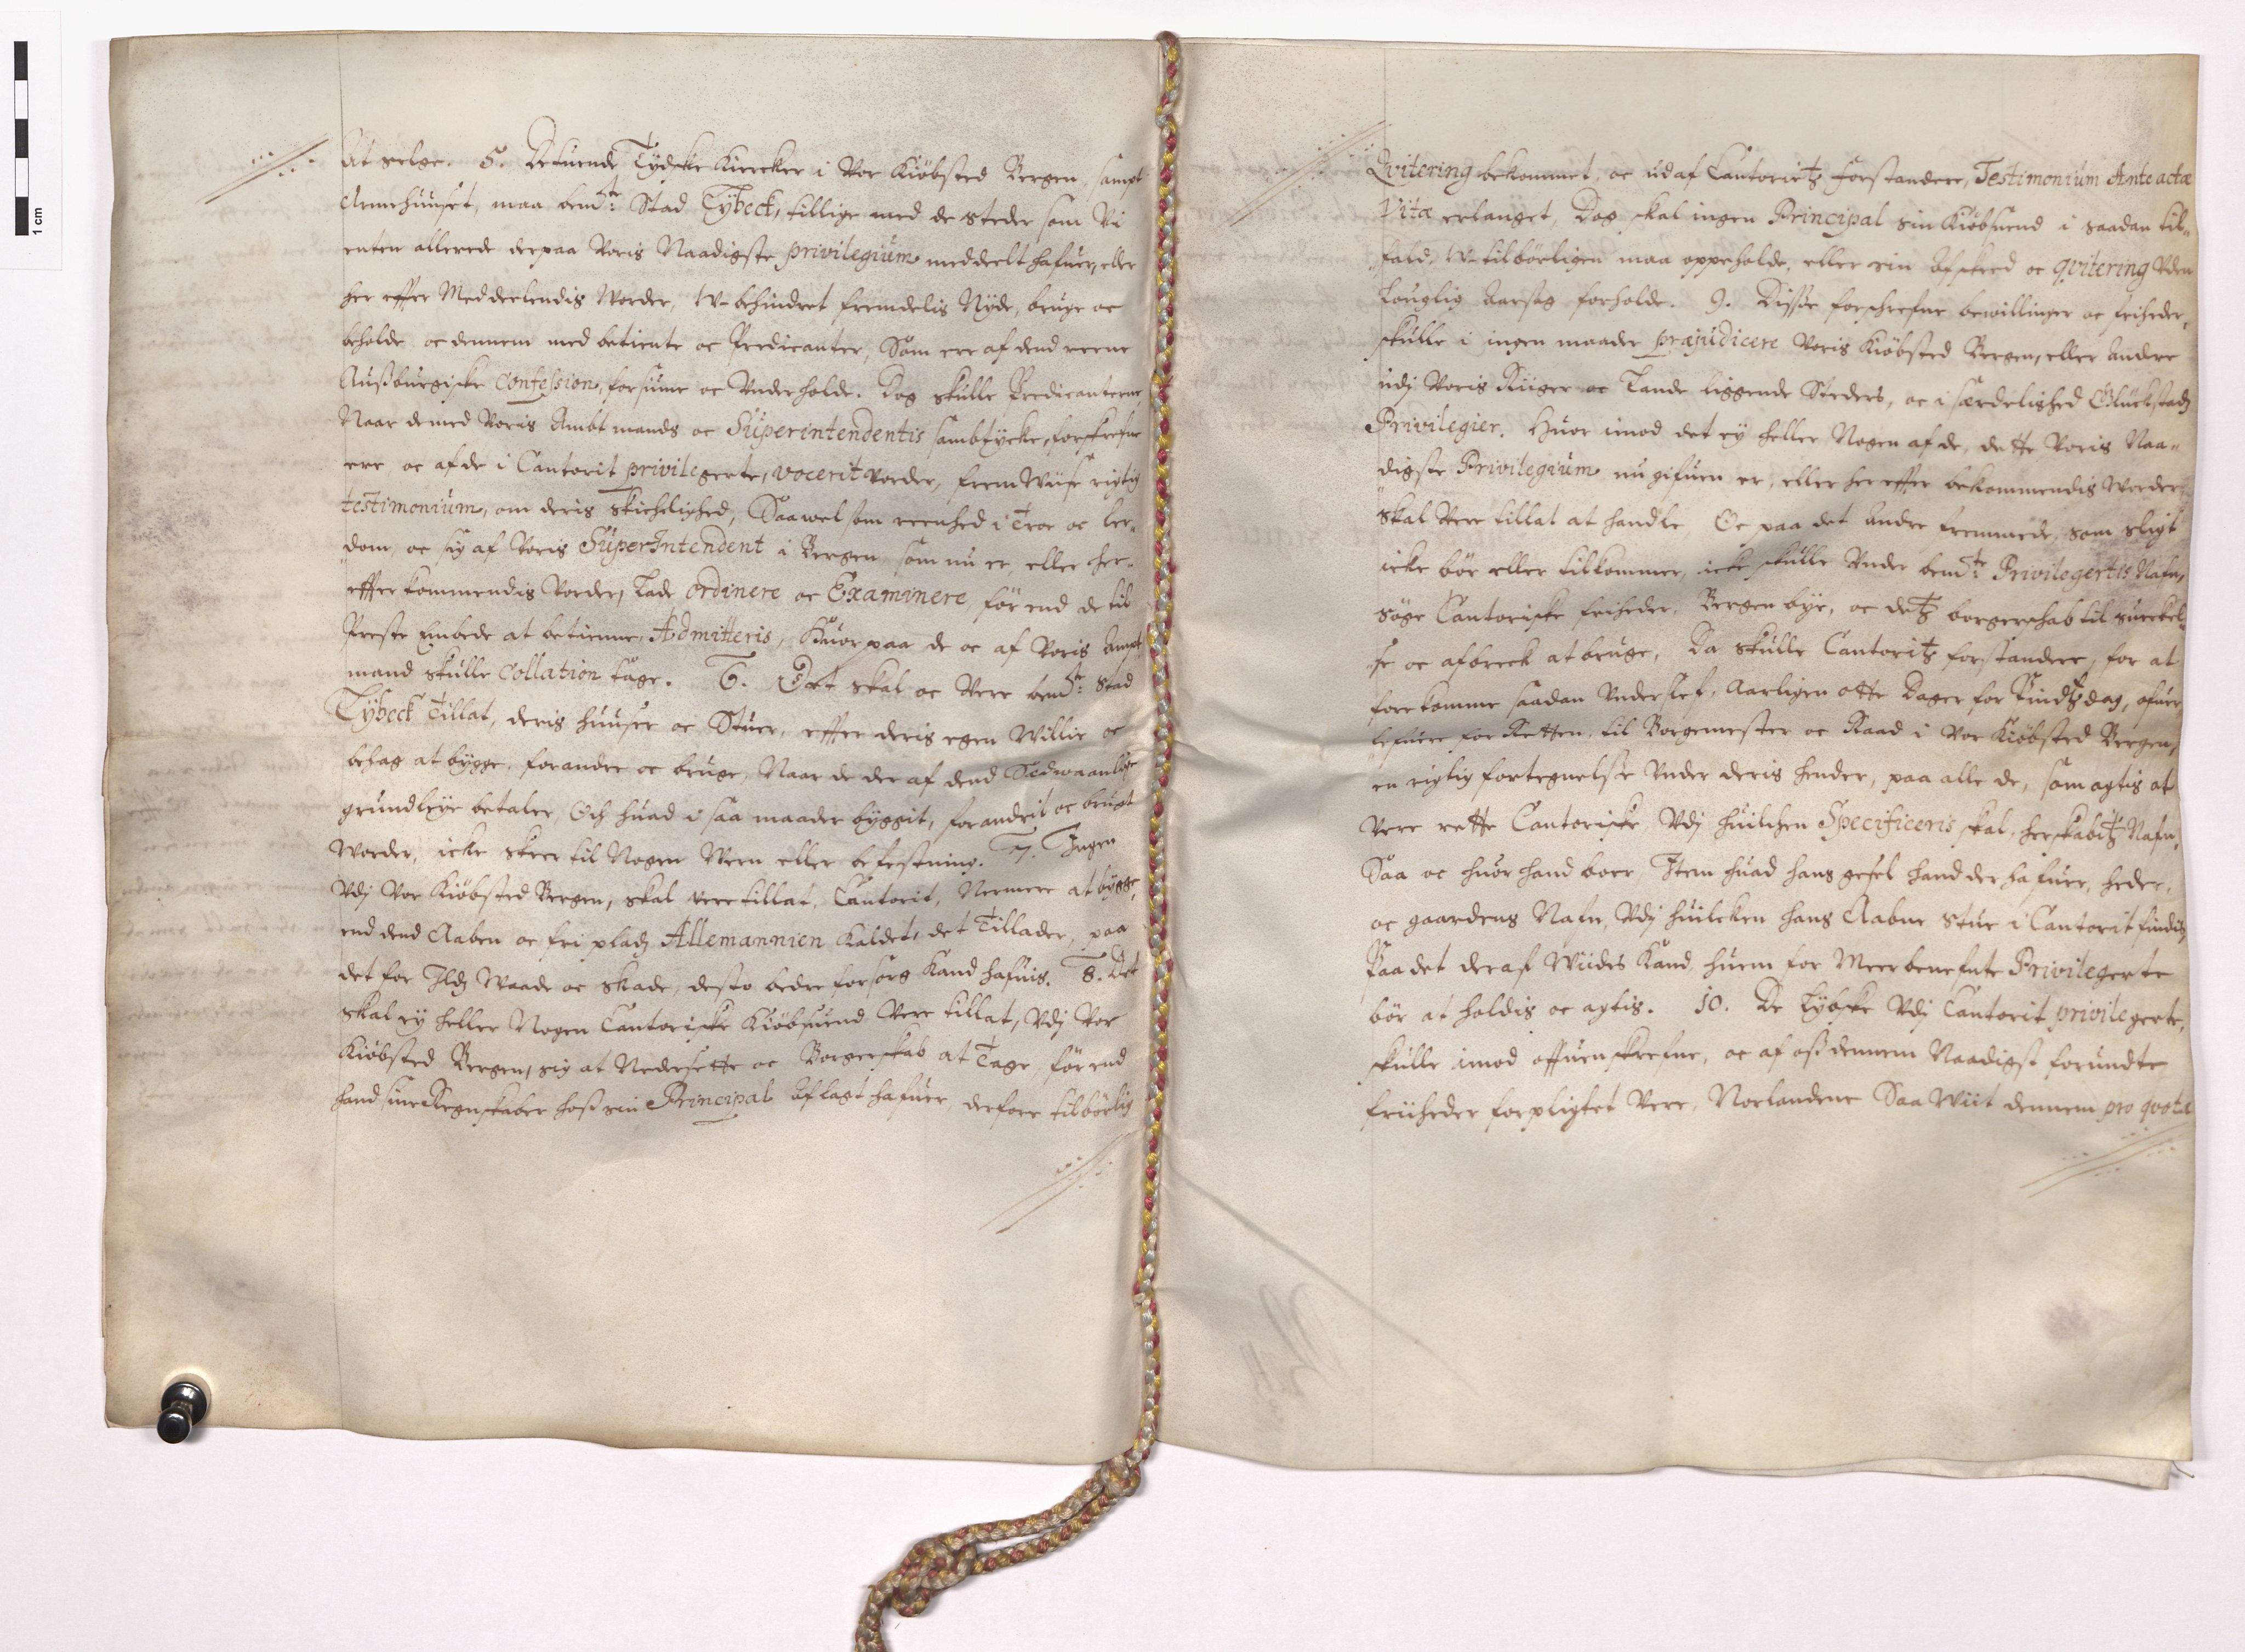 1 cm
At selge. 5. De tuende Tydske Kiercker i Vor Kiöbsted Bergen, sampt
Armehuuset, maa bemte: Stad Lybeck, tillige med de steder som Vi
enten allerede derpaa Voris Naadigste privilegium meddeelt hafuer, eller
her effter Meddeelendis Vorder, W-behindret fremdelis Nyde, bruge oc
beholde oc dennem med betiente oc Predicanter, Som ere af dend reene
Aussburgiske Confession, forsiune oc Underholde. Dog skulle Predicanterne,
Naar de med Voris Ambtmands oc Superintendentis sambtycke, forskrefne
ere, oc af de i Cantorit privilegerte, vocerit vorder, frem Wiise rigtig
testimonium, om deris Skichelighed, Saawel som reenhed i Troe oc ler-
dom, oc sig af Voris SuperIntendent i Bergen, som nu er, eller her-
effter kommendis Vorder, Lade ordinere oc Examinere, för end de til
Preste Embede at betienne, Admitteris, Huorpaa de oc af Voris Ampt
mand skulle Collation tage. 6. Det skal oc Vere bemte: Stad
Lybeck Tillat, deris huuser oc Stuer, effter deris egen Willie oc
behag at bygge, forandre oc bruge, Naar de der af dend Sedwaanlige
grundleye betaler, Och huad i saa maader byggit, forandrit oc brugt
Worder, icke skeer til Nogen Wern eller befestning. 7. Ingen
Udj Vor Kiöbsted Bergen, skal vere tillat, Cantorit, Nermere at bygge,
end dend Aaben oc fri pladz Allemannien Kaldet, det Tillader, paa
det for Ildz Waade oc skade, desto bedre forsorg Kand hafuis. 8. Det
skal ey heller Nogen Cantoriske Kiöbsuend Vere tillat, Udj Vor
Kiöbsted Bergen, sig at Nedersette oc Borgerskab at Tage, för end
hand sine Regnskaber hoss sin Principal Aflagt hafuer, derfore tilbörlig
Qvitering bekommet, oc udaf Cantoritz forstandere, Testimonium Ante actæ
Vitæ erlanget, Dog skal ingen Principal sin Kiöbsuend i saadan til-
fald, W-tilbörligen maa oppeholde, eller sin Afskeed oc qvitering Uden
Louglig Aarsag forholde. 9. Disse forschrefne bewillinger oc friheder,
skulle i ingen maader præjudicere Voris Kiöbsted Bergen, eller Andre
udj Voris Riiger oc Lande liggende Steders, oc i særdelished Glückstadz
Privilegier. Huor imod det ey heller Nogen af de, dette Voris Naa-
digste Privilegium nu gifuen er, eller her effter bekommendis Worder,
skal Vere tillat at handle, Oc paa det Andre fremmede, som sligt
icke bör eller tilkommer, icke skulle Under bemte: Privilegertis Nafn,
söge Cantoriske friheder, Bergen bye, oc detz borgerschab til suechel-
se oc afbreck at bruge, Da skulle Cantoritz forstandere, for at
forekomme saadan Underslef, Aarligen otte Dager for Pindtzdag, ofuer
lefuere for Retten, til Borgemester oc Raad i Vor Kiöbsted Bergen,
en rigtig fortegnelse Under deris hender, paa alle de, som agtis at
Vere rette Cantoriske, Udj huilchen Specificeris skal, herskabitz Nafn,
Saa oc huor hand boer, Item huad hans gesel hand der hafuer, heder,
oc gaardens Nafn, Udj huilcken hans Aabne Stue i Cantorit findis,
Paa det deraf Wiides Kand, huem for Meerbenefnte Privilegerte
bör at holdis oc agtis. 10. De Lybske Udj Cantorit privilegerte,
skulle imod offuenskrefne, oc af oss dennem Naadigst forundte
friiheder forpligtet Vere, Norlandene Saa Wiit dennem pro qvota